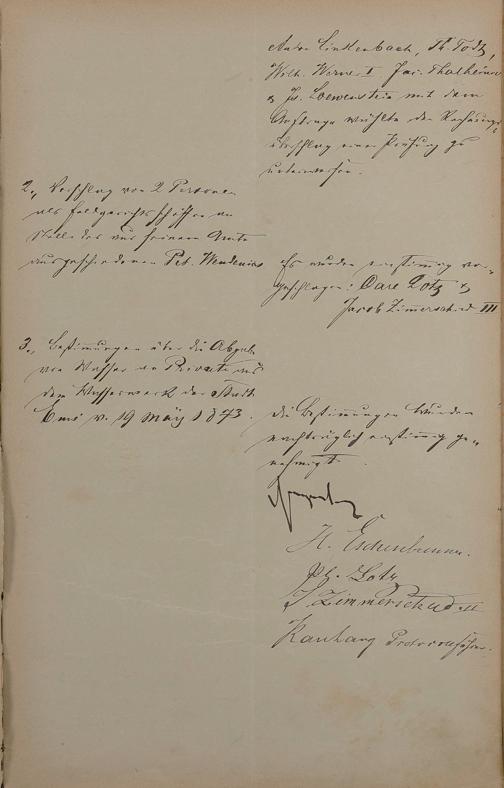 Linkenbach, Th. Todt,
Wilh. Werner I Jac. Thalheimer
& Js. Loewenstein mit dem
Auftrage wählte den Rechnungs-
überschlag einer Prüfung zu
unterwerfen.
2., Vorschlag von 2 Personen
als Feldgerichtsschöffen an
Stelle des aus seinem Amte
ausgeschiedenen Pet.
Es wurden einstimmig vor-
geschlagen: Carl Lotz &
Jacob Zimmerschied III
3., Bestimmungen über die Abgabe
von Wasser an Private aus
dem Wasserwerk der Stadt
Ems v. 19 May 18
Die Bestimmungen wurden
nachträglich einstimmig ge-
nehmigt.
H. Eschenbrenner.
Ph. Lotz
J Zimmerschied
Protocollführer.